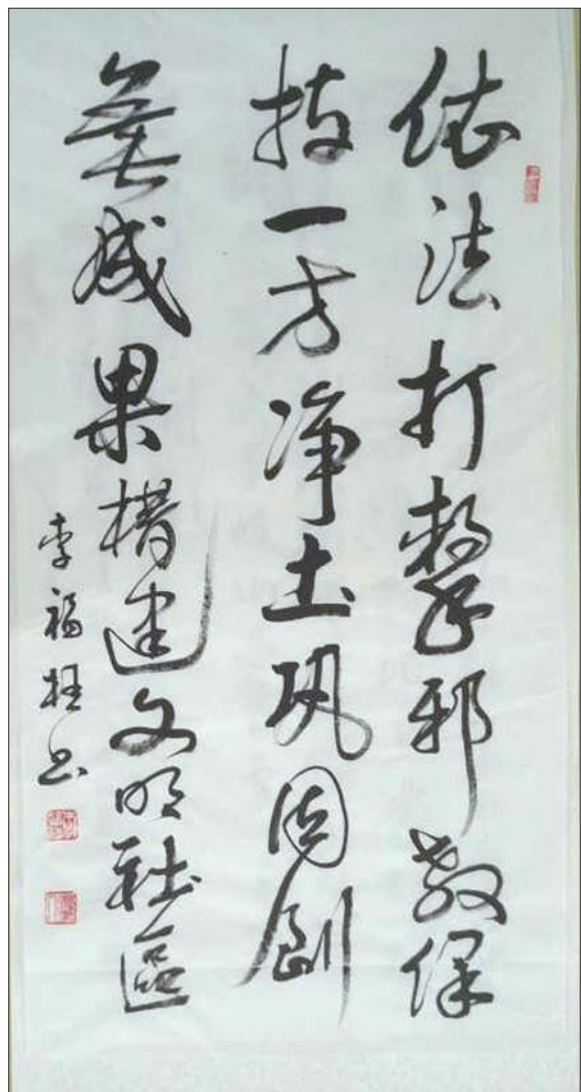 依法打擊邪教保
持一方净土巩固創
無成果構建文明社區
李福书